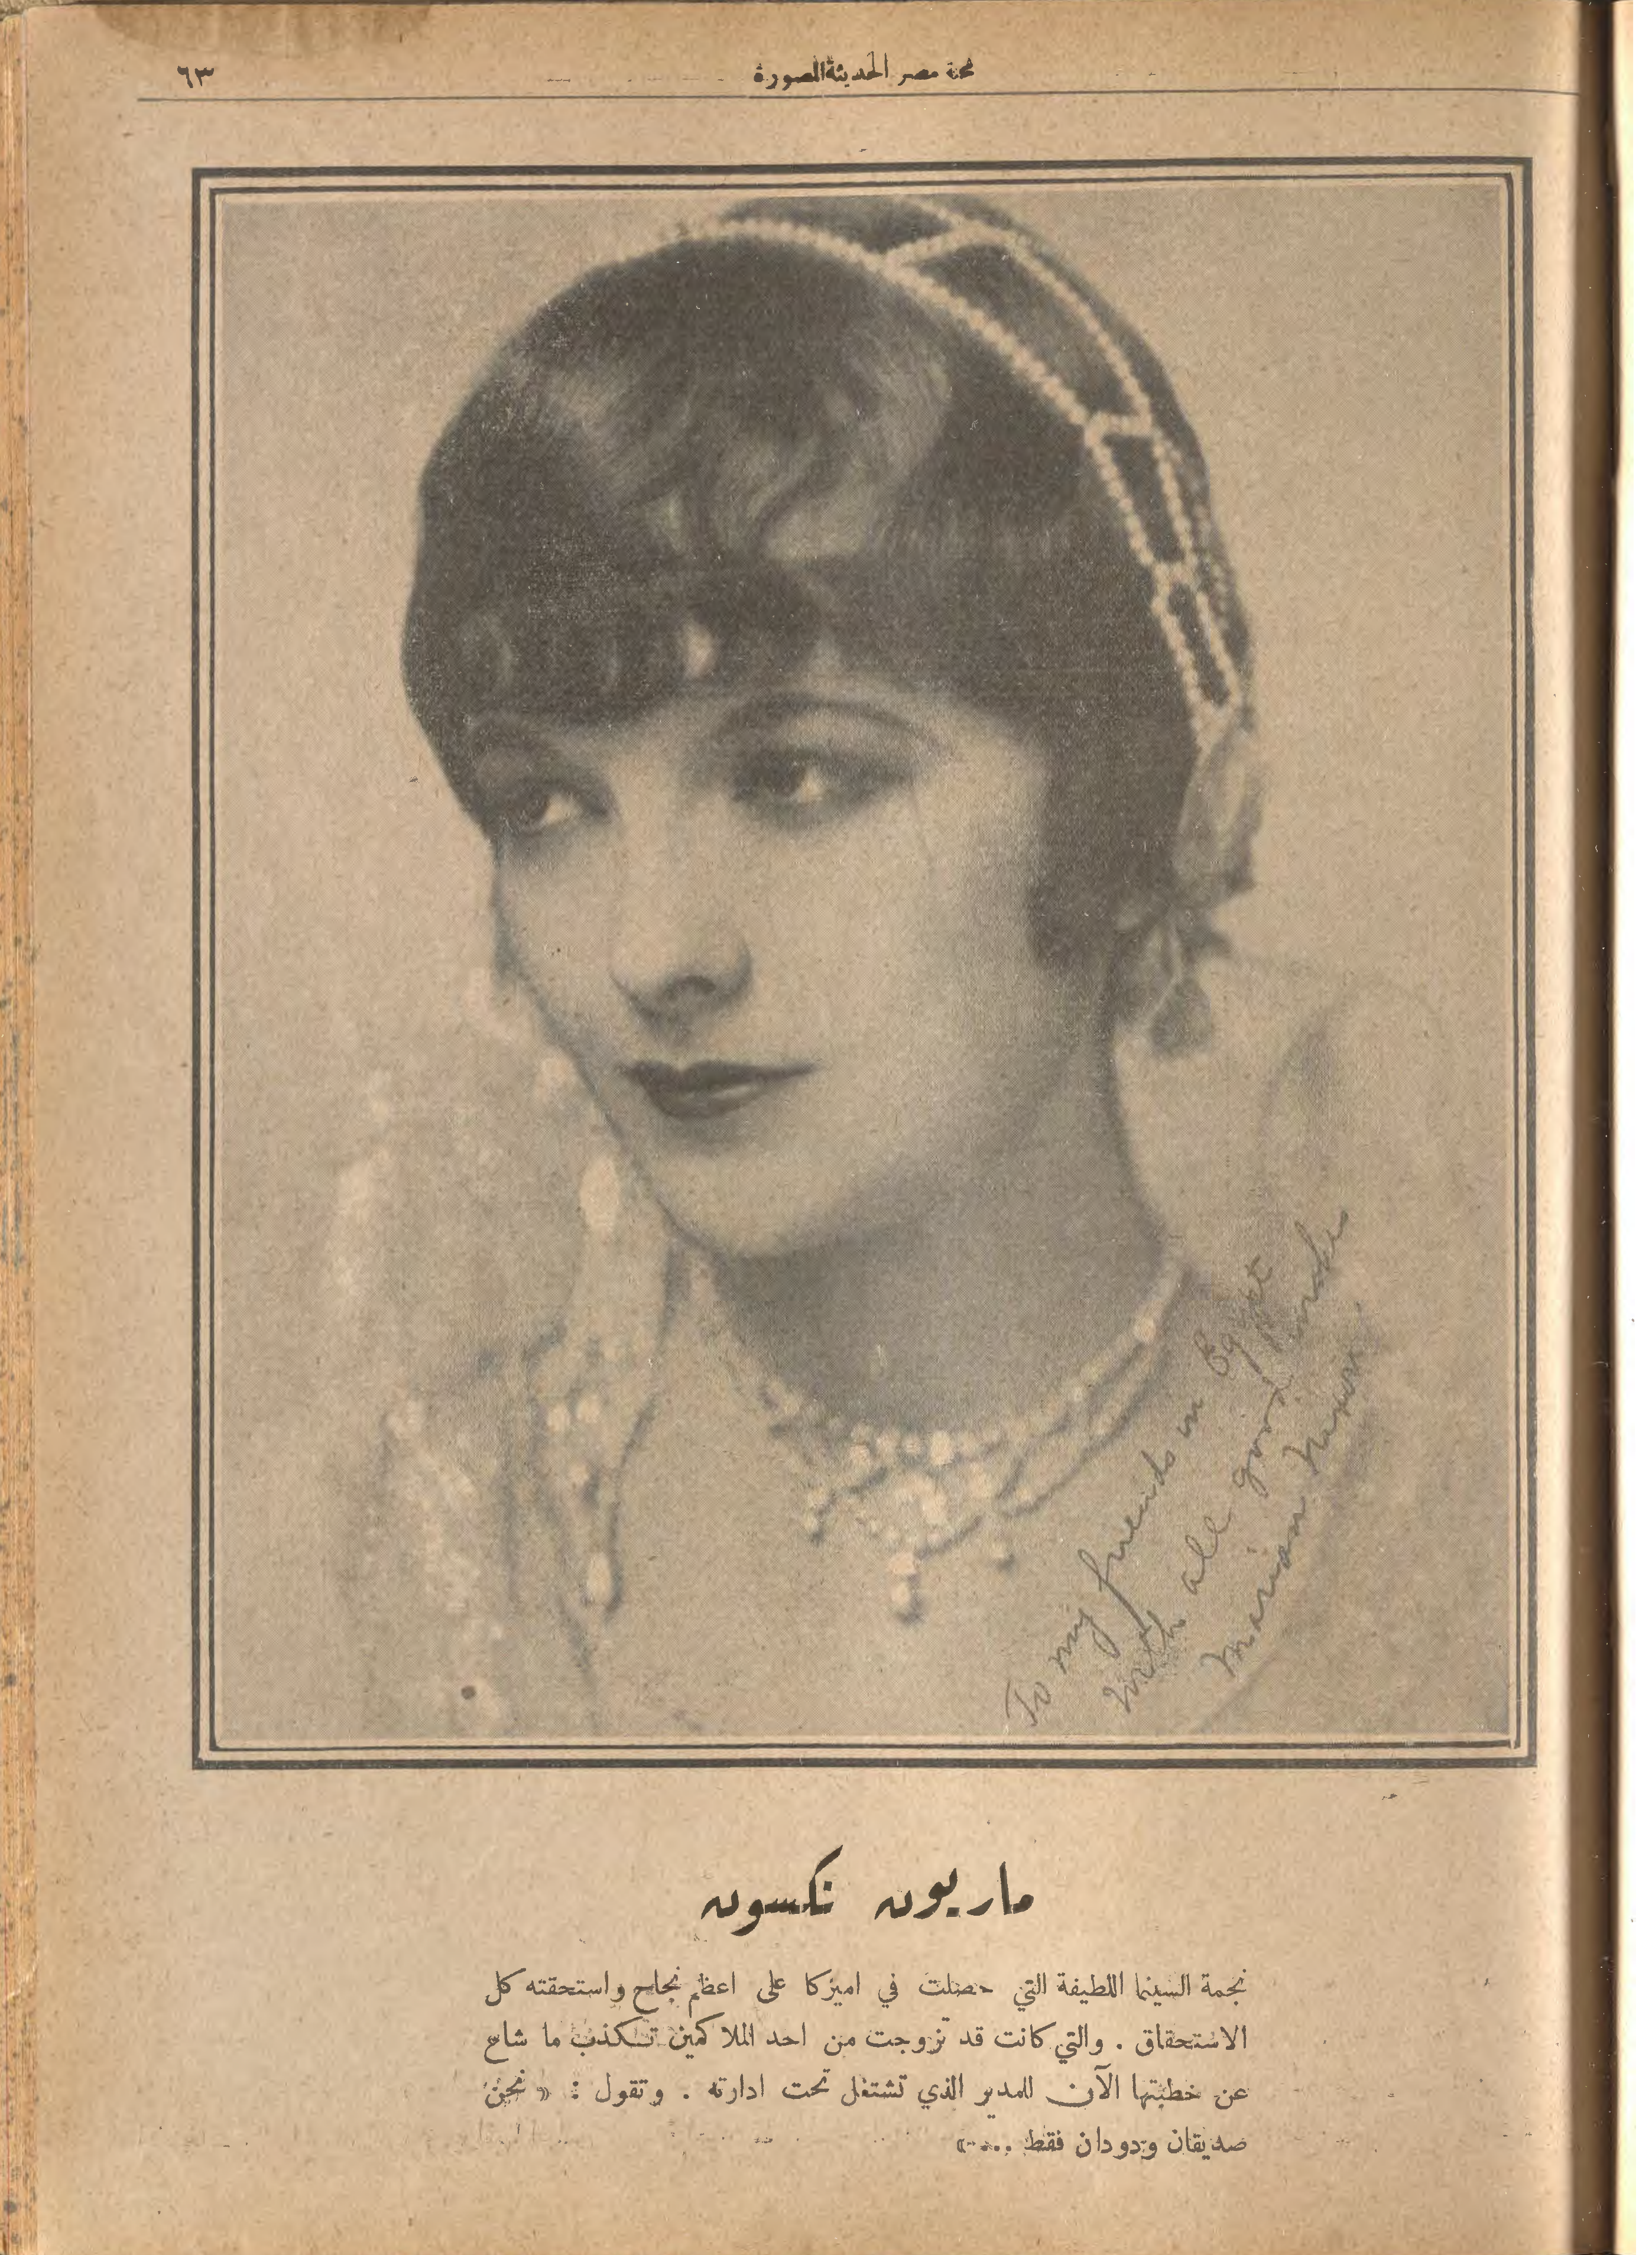 ٦٣
مجلة مصر الحديثة المصورة
To my friends in Egypt
With all good wishes
Marian Nixon
ماريون نكسون
نجمة السينما اللطيفة التي حصلت في اميركا على اعظم نجاح واستحقته كل
الاستحقاق . والتي كانت قد تزوجت من احد الملاكمين تكذب ما شاع
عن خطبتها الآن للمدير الذي تشتغل تحت ادارته . وتقول : « نحن
صديقان ودودان فقط ... »